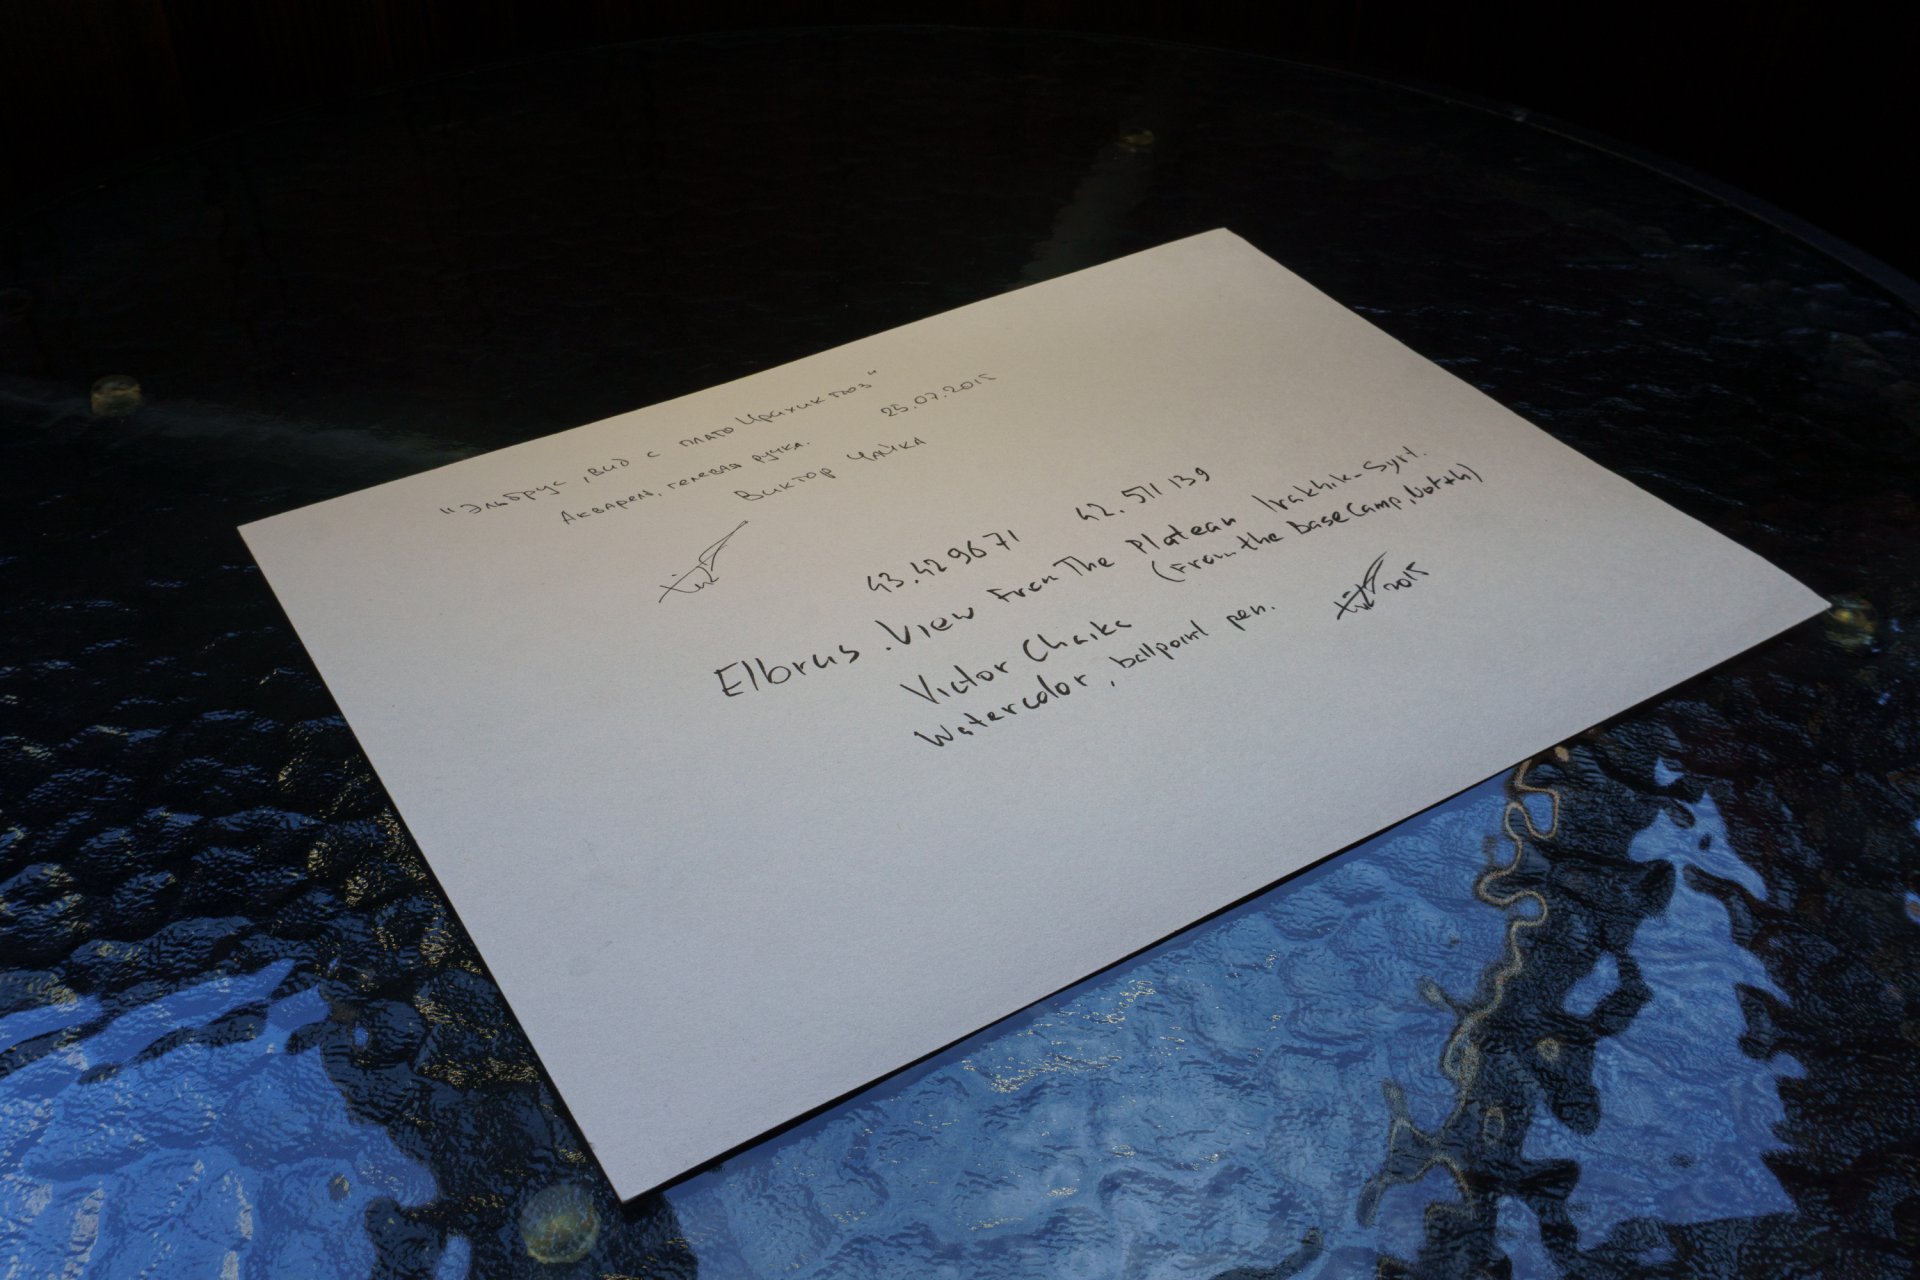 "Эльбрус, вид с плато Ирахиктюз"
Акварель, гелевая ручка. 25.07.2015
Виктор Чайка
43.429671 42.511139
Elbrus. View From The Plateau Irakhik-Syrt.
(From the base Camp, North)
Victor Chaika
Watercolor, ballpoint pen. 2015